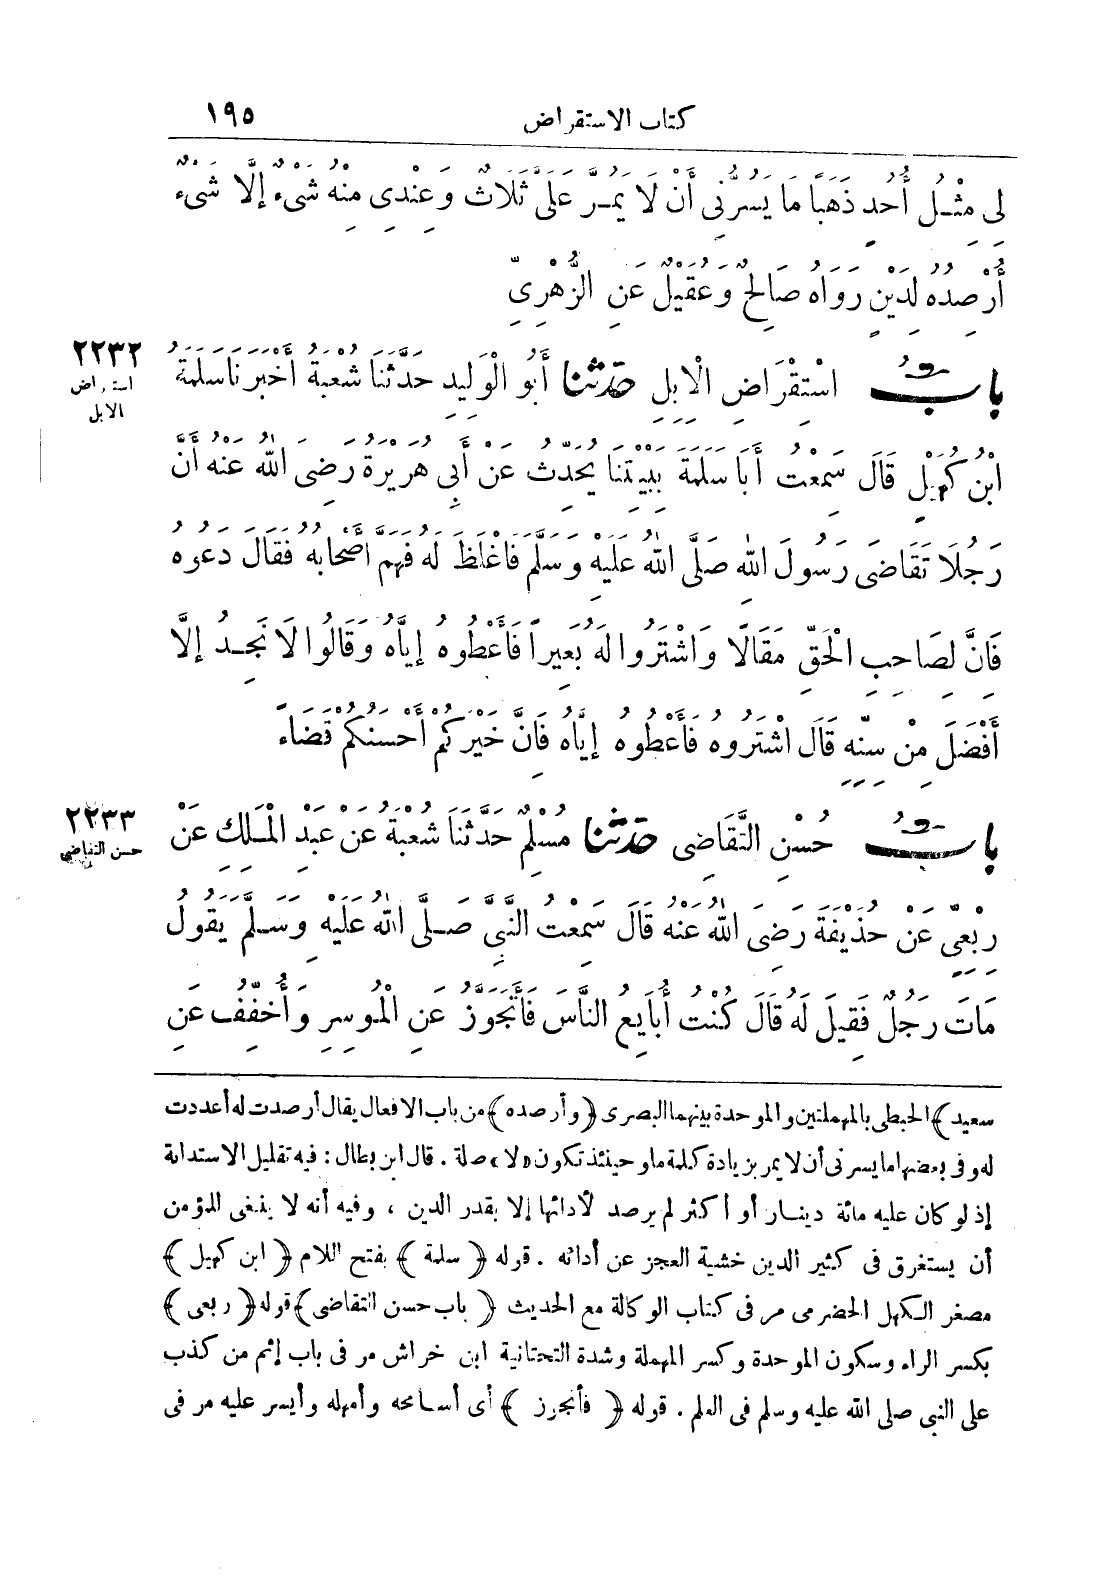 كتاب الاستقراض ١٩٥
لِى مِثْلُ أُحُدٍ ذَهَبًا مَا يَسُرُّنِى أَنْ لَا يَمُرَّ عَلَىَّ ثَلَاثٌ وَعِنْدِى مِنْهُ شَىْءٌ إِلَّا شَىْءٌ
أُرْصِدُهُ لِدَيْنٍ رَوَاهُ صَالِحٌ وَعُقَيْلٌ عَنِ الزُّهْرِىِّ
بابُ اسْتِقْرَاضِ الْإِبِلِ حَدَّثَنَا أَبُو الْوَلِيدِ حَدَّثَنَا شُعْبَةُ أَخْبَرَنَا سَلَمَةُ
٢٢٣٢
استقراض
الابل
ابْنُ كُهَيْلٍ قَالَ سَمِعْتُ أَبَا سَلَمَةَ بِبَيْتِنَا يُحَدِّثُ عَنْ أَبِى هُرَيْرَةَ رَضِىَ اللهُ عَنْهُ أَنَّ
رَجُلًا تَقَاضَى رَسُولَ اللهِ صَلَّى اللهُ عَلَيْهِ وَسَلَّمَ فَأَغْلَظَ لَهُ فَهَمَّ أَصْحَابُهُ فَقَالَ دَعُوهُ
فَانَّ لِصَاحِبِ الْحَقِّ مَقَالًا وَاشْتَرُوا لَهُ بَعِيراً فَأَعْطُوهُ إِيَّاهُ وَقَالُوا لَا نَجِدُ إِلَّا
أَفْضَلَ مِنْ سِنِّهِ قَالَ اشْتَرُوهُ فَأَعْطُوهُ إِيَّاهُ فَانَّ خَيْرَكُمْ أَحْسَنُكُمْ قَضَاءً
بابُ حُسْنِ التَّقَاضِى حَدَّثَنَا مُسْلِمٌ حَدَّثَنَا شُعْبَةُ عَنْ عَبْدِ الْمَلِكِ عَنْ
٢٢٣٣
حسن التقاضى
رِبْعِىٍّ عَنْ حُذَيْفَةَ رَضِىَ اللهُ عَنْهُ قَالَ سَمِعْتُ النَّبِىَّ صَلَّى اللهُ عَلَيْهِ وَسَلَّمَ يَقُولُ
مَاتَ رَجُلٌ فَقِيلَ لَهُ قَالَ كُنْتُ أُبَايِعُ النَّاسَ فَأَتَجَوَّزُ عَنِ الْمُوسِرِ وَأُخَفِّفُ عَنِ
سعيد﴾ الحبطى بالمهملتين والموحدة بينهما البصرى ﴿وأرصده﴾ من باب الافعال يقال أرصدت له أعددت
له وفى بعضها ما يسرنى أن لا يمر بزيادة كلمة ما وحينئذ تكون «لا» صلة . قال ابن بطال : فيه تقليل الاستدانة
إذ لو كان عليه مائة دينار أو أكثر لم يرصد لأدائها إلا بقدر الدين ، وفيه أنه لا ينبغى للمؤمن
أن يستغرق فى كثير الدين خشية العجز عن أدائه . قوله ﴿ سلمة ﴾ بفتح اللام ﴿ ابن كهيل ﴾
مصغر الكهل الحضرمى مر فى كتاب الوكالة مع الحديث ﴿ باب حسن التقاضى ﴾ قوله ﴿ ربعى ﴾
بكسر الراء وسكون الموحدة وكسر المهملة وشدة التحتانية ابن خراش مر فى باب إثم من كذب
على النبى صلى الله عليه وسلم فى العلم . قوله ﴿ فأتجوز ﴾ أى أسامحه وأمهله وأيسر عليه مر فى